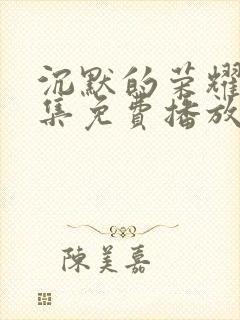 沉默的荣耀
集免費播放
陳美嘉